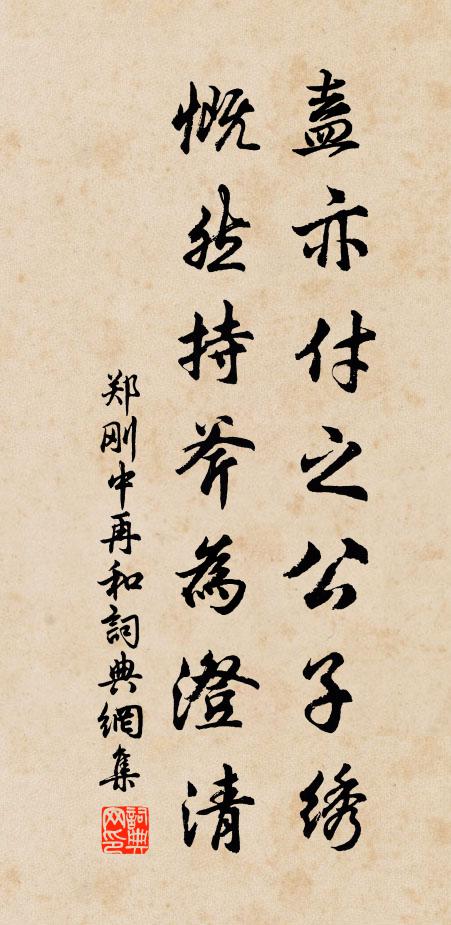 盍亦付之公子绣
慨然持斧為澄清
郑刚中再和詞典網集
詞典網印